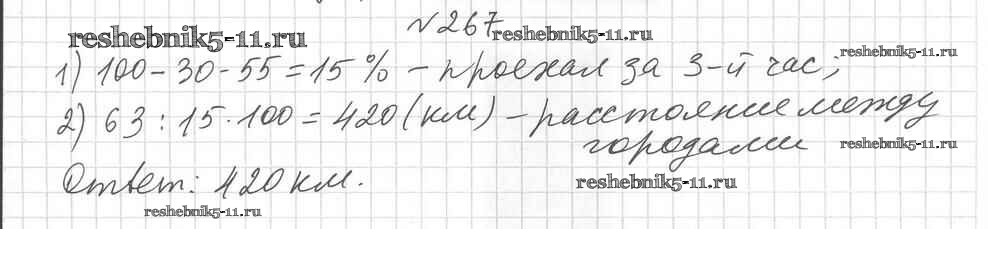 №267
reshebnik5-11.ru
reshebnik5-11.ru
reshebnik5-11.ru
1) 100-30-55=15% - проехал за 3-й час;
2) 63:15·100=420(км) - расстояние между
городами
reshebnik5-11.ru
Ответ: 420 км.
reshebnik5-11.ru
reshebnik5-11.ru